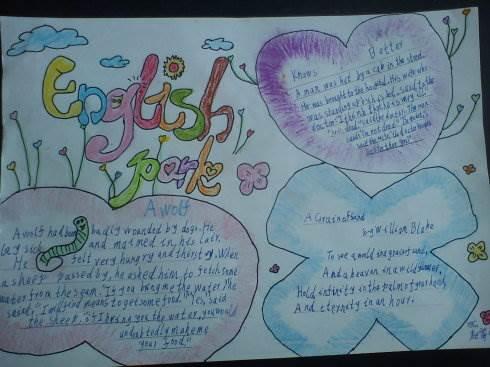 English
park
Knows Better
A man was hit by a car in the street.
He was brought to the hospital. His wife who
was standing by his bed, said to the
doctor: "I think that he is
dead," said the doctor. The man
said: "I'm not dead."
A wolf
A wolf had been badly wounded by dogs. He
lay sick and maimed in his lair.
He felt very hungry and thirsty. When
a sheep passed by, he asked him to fetch some
water from the stream. "If you bring me the water," he
said, "I will find means to get some food." "Yes," said
the sheep, "if I bring you the water, you would
undoubtedly make me
your food."
A Grain of Sand
by William Blake
To see a world in a grain of sand,
And a heaven in a wild flower,
Hold infinity in the palm of your hand,
And eternity in an hour.